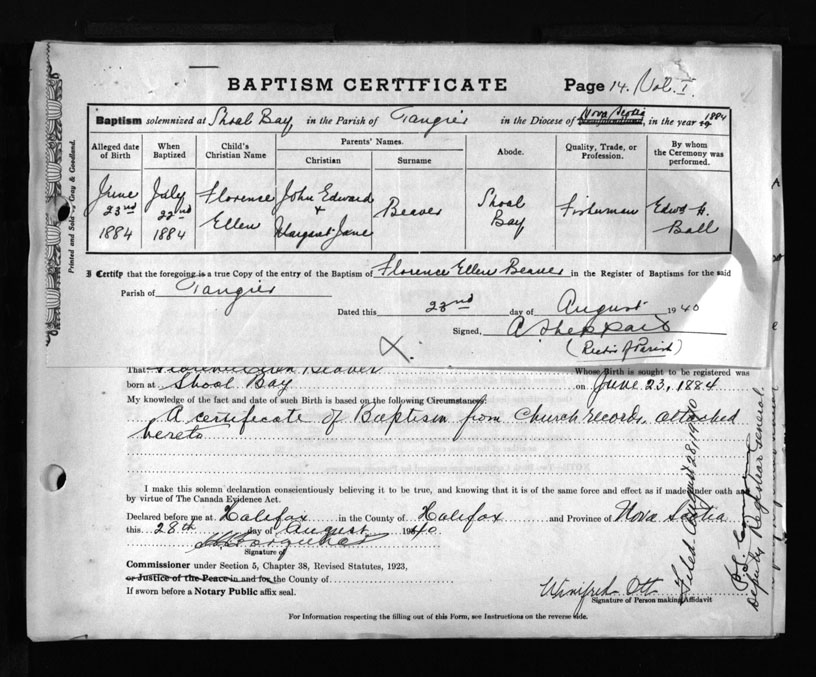 BAPTISM CERTIFICATE Page 14. Vol. I.
Baptism solemnized at Shoal Bay, in the Parish of Tangier in the Diocese of Nova Scotia, in the year 1884
Alleged date of Birth | When Baptized | Child's Christian Name | Parents' Names. Christian | Surname | Abode. | Quality, Trade, or Profession. | By whom the Ceremony was performed.
June 23nd 1884 | July 22nd 1884 | Florence Ellen | John Edward + Margaret Jane | Beaver | Shoal Bay | Fisherman | Edwd H. Ball
Printed and Sold by Gray & Goodland.
I Certify that the foregoing is a true Copy of the entry of the Baptism of Florence Ellen Beaver in the Register of Baptisms for the said
Parish of Tangier
Dated this 23nd day of August 1940
Signed, A Sheppard
(Rector of Parish)
X.
That Florence Ellen Beaver Whose Birth is sought to be registered was
born at Shoal Bay on June 23, 1884
My knowledge of the fact and date of such Birth is based on the following Circumstances:
A certificate of Baptism from Church records, attached
hereto
I make this solemn declaration conscientiously believing it to be true, and knowing that it is of the same force and effect as if made under oath and
by virtue of The Canada Evidence Act.
Declared before me at Halifax in the County of Halifax and Province of Nova Scotia
this 28th day of August 1940
Signature of
Commissioner under Section 5, Chapter 38, Revised Statutes, 1923,
or Justice of the Peace in and for the County of
If sworn before a Notary Public affix seal.
Winifred Ott
Signature of Person making Affidavit
For Information respecting the filling out of this Form, see Instructions on the reverse side.
Filed August 28, 1940
Deputy Registrar General.